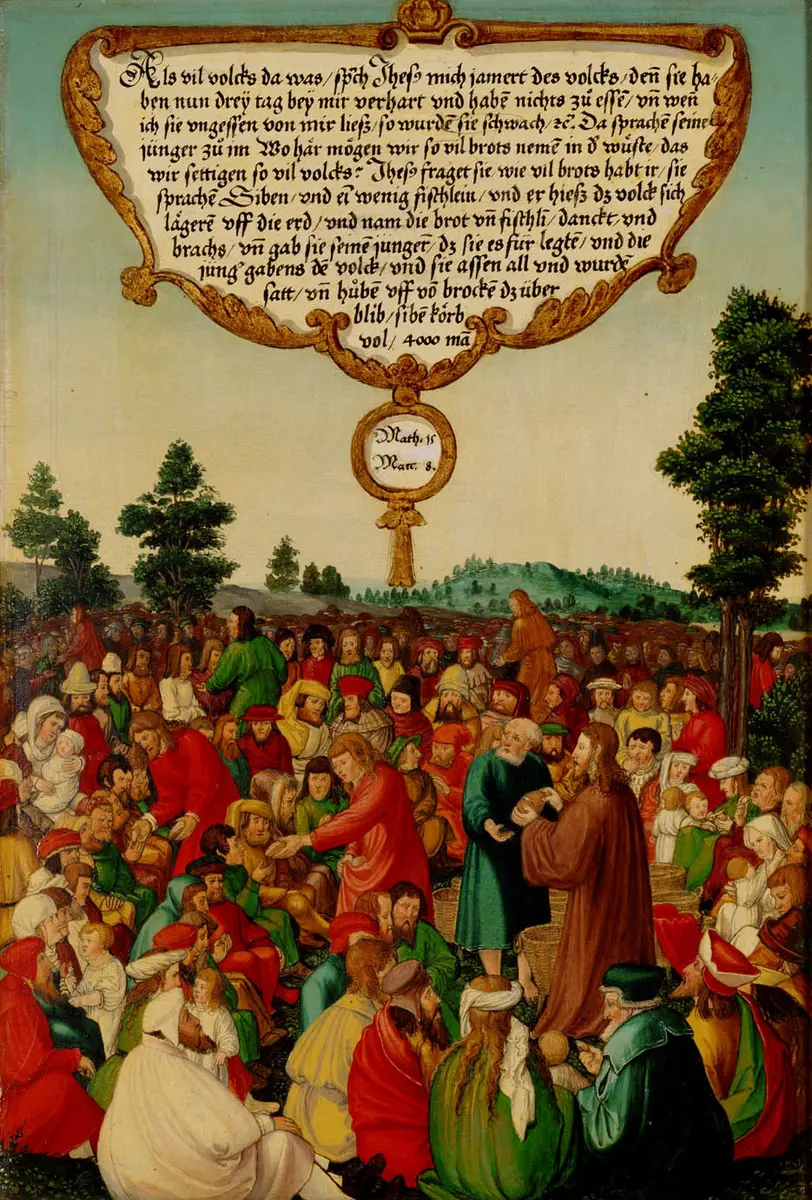 Als vil volcks da was / spͦch Jhesꝰ mich jamert des volcks / deñ sie ha⸗
ben nun drey tag bey mir verhart vnd habeñ nichts zů esseñ / vñ weñ
ich sie vngessen von mir ließ / so wurdeñ sie schwach / ꝛc̃. Da spracheñ seine
jünger zů im Wo här mögen wir so vil brots nemeñ in d̓ wüste / das
wir settigen so vil volcks? Jhesꝰ fraget sie wie vil brots habt ir / sie
spracheñ Siben / vnd ei᷈ wenig fischlein / vnd er hieß dz volck sich
lägereñ vff die erd / vnd nam die brot vñ fischli᷈ / danckt / vnd
brachs / vñ gab sie seineñ jungeꝛ᷈ / dz sie es für legteñ / vnd die
jüngꝰ gabens deñ volck / vnd sie assen all vnd wurdeñ
satt / vñ hůben vff võ brockeñ dz über
blib / sibeñ körb
vol / 4000 mã
Math. 15
Marc. 8.